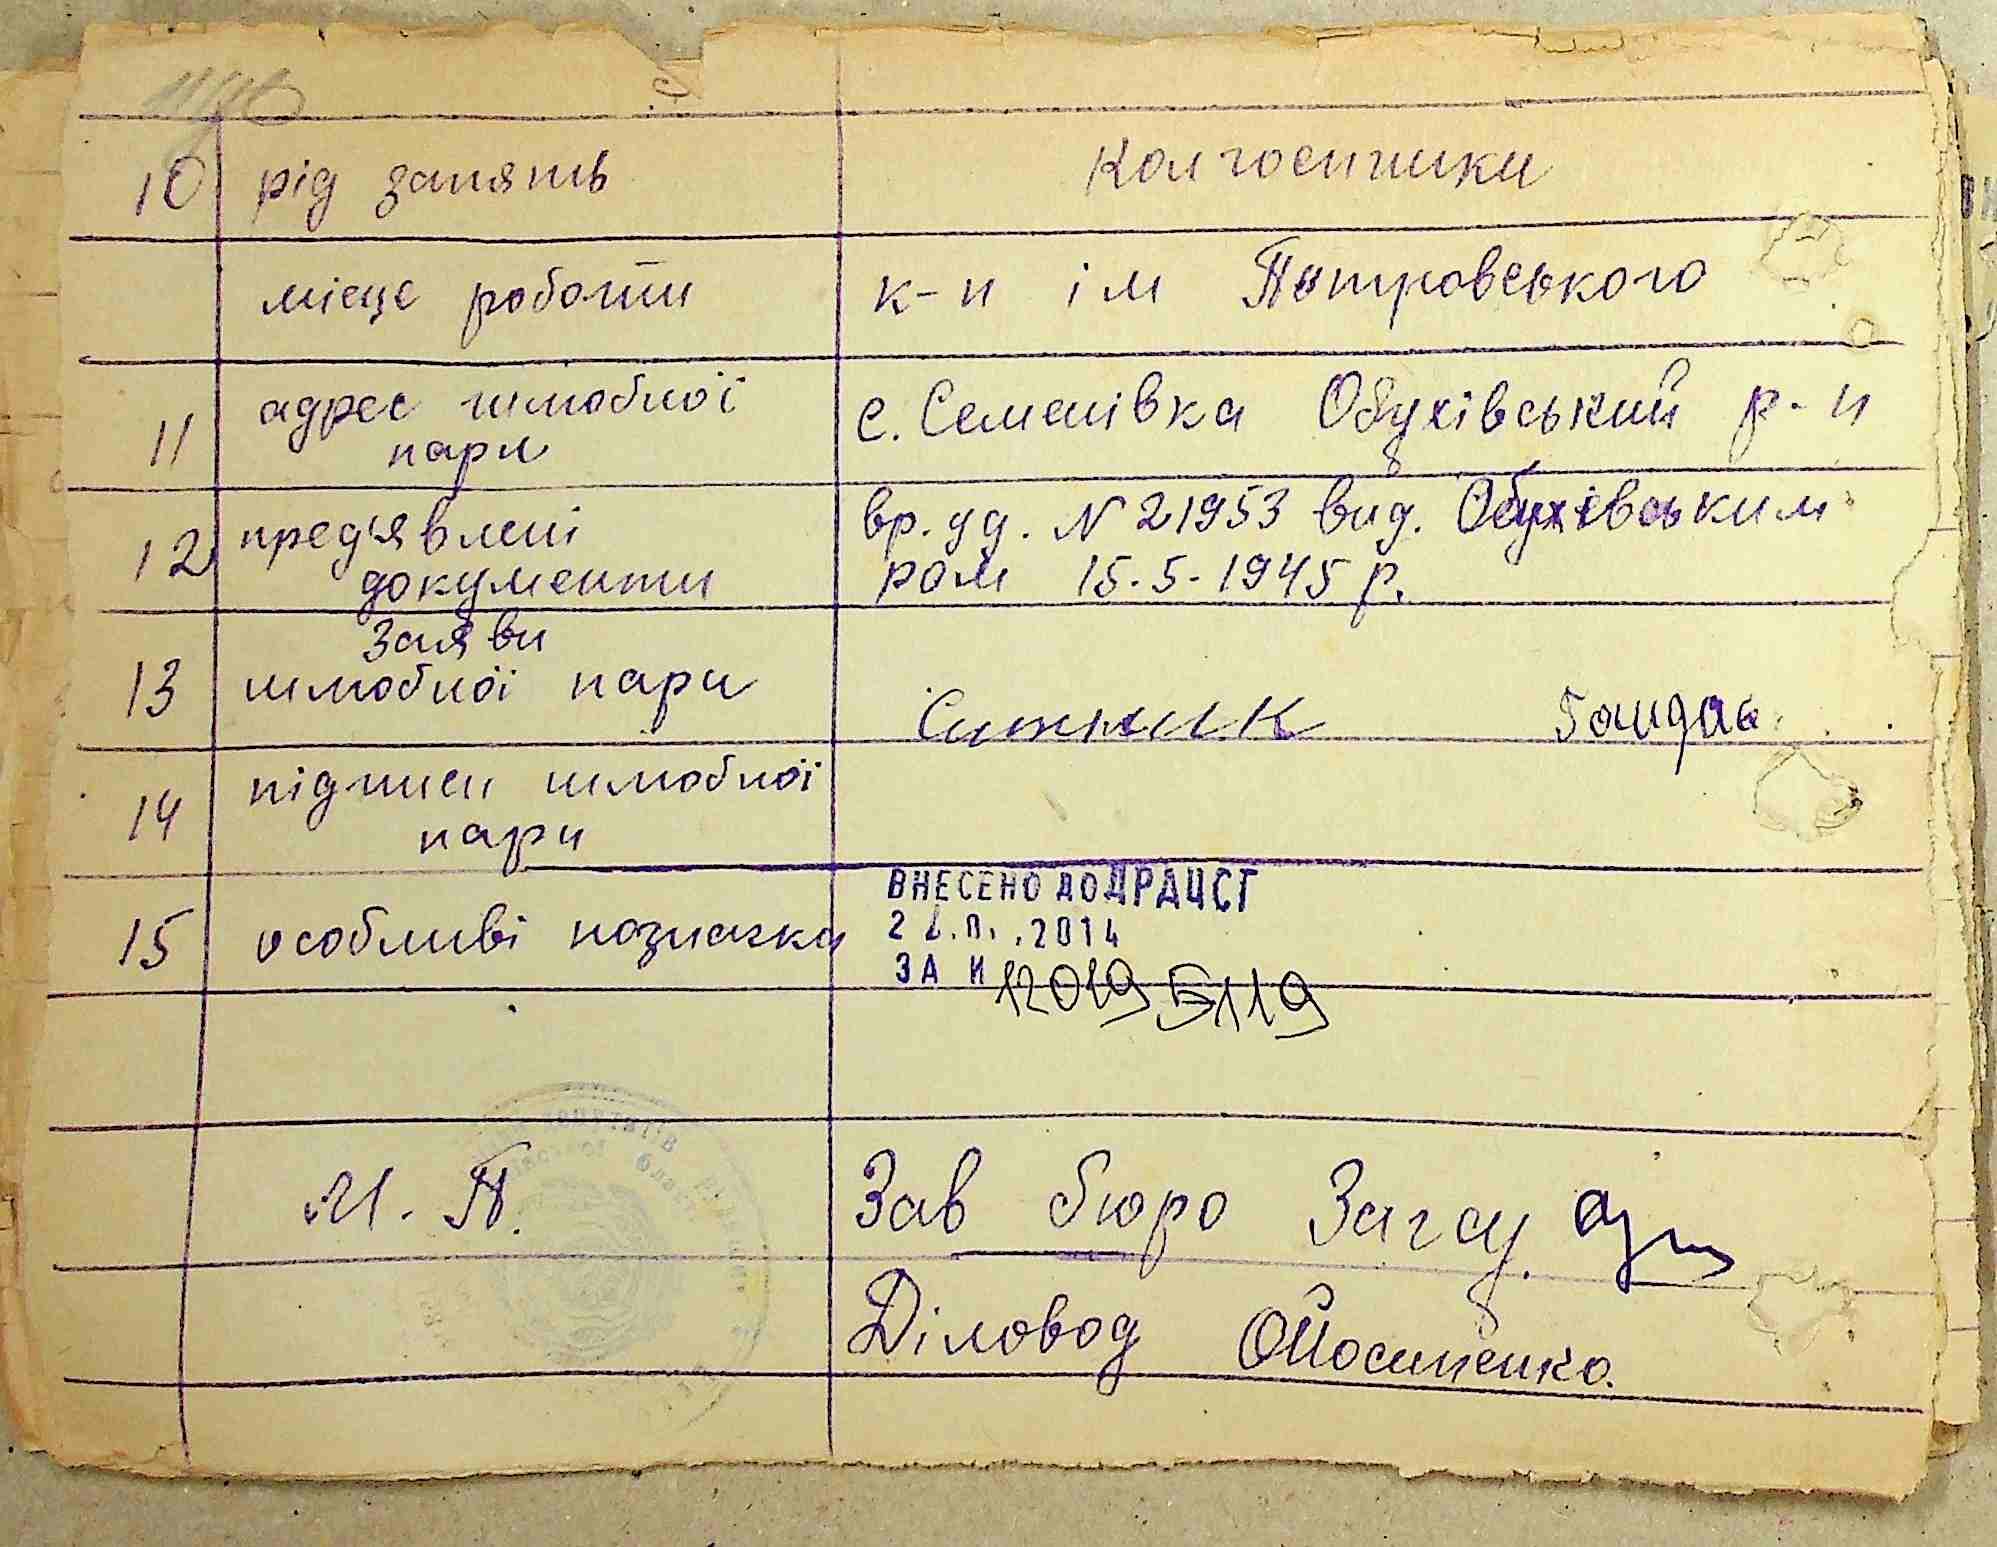 10 рід занять Колгоспники
місце роботи к-п ім Петровського
11 адрес шлюбної с. Семенівка Обухівський р-н
пари
12 пред'явлені вр. уд. N 21953 вид. Обухівським
документи ром 15.5.1945 р.
Заяви
13 шлюбної пари
Ситник
14 підписи шлюбної
пари
15 особливі позначки
ВНЕСЕНО ДО ДРАЦСГ
2014
ЗА N 12019 5119
М. П. Зав бюро Загсу
Діловод ОЙосипенко.